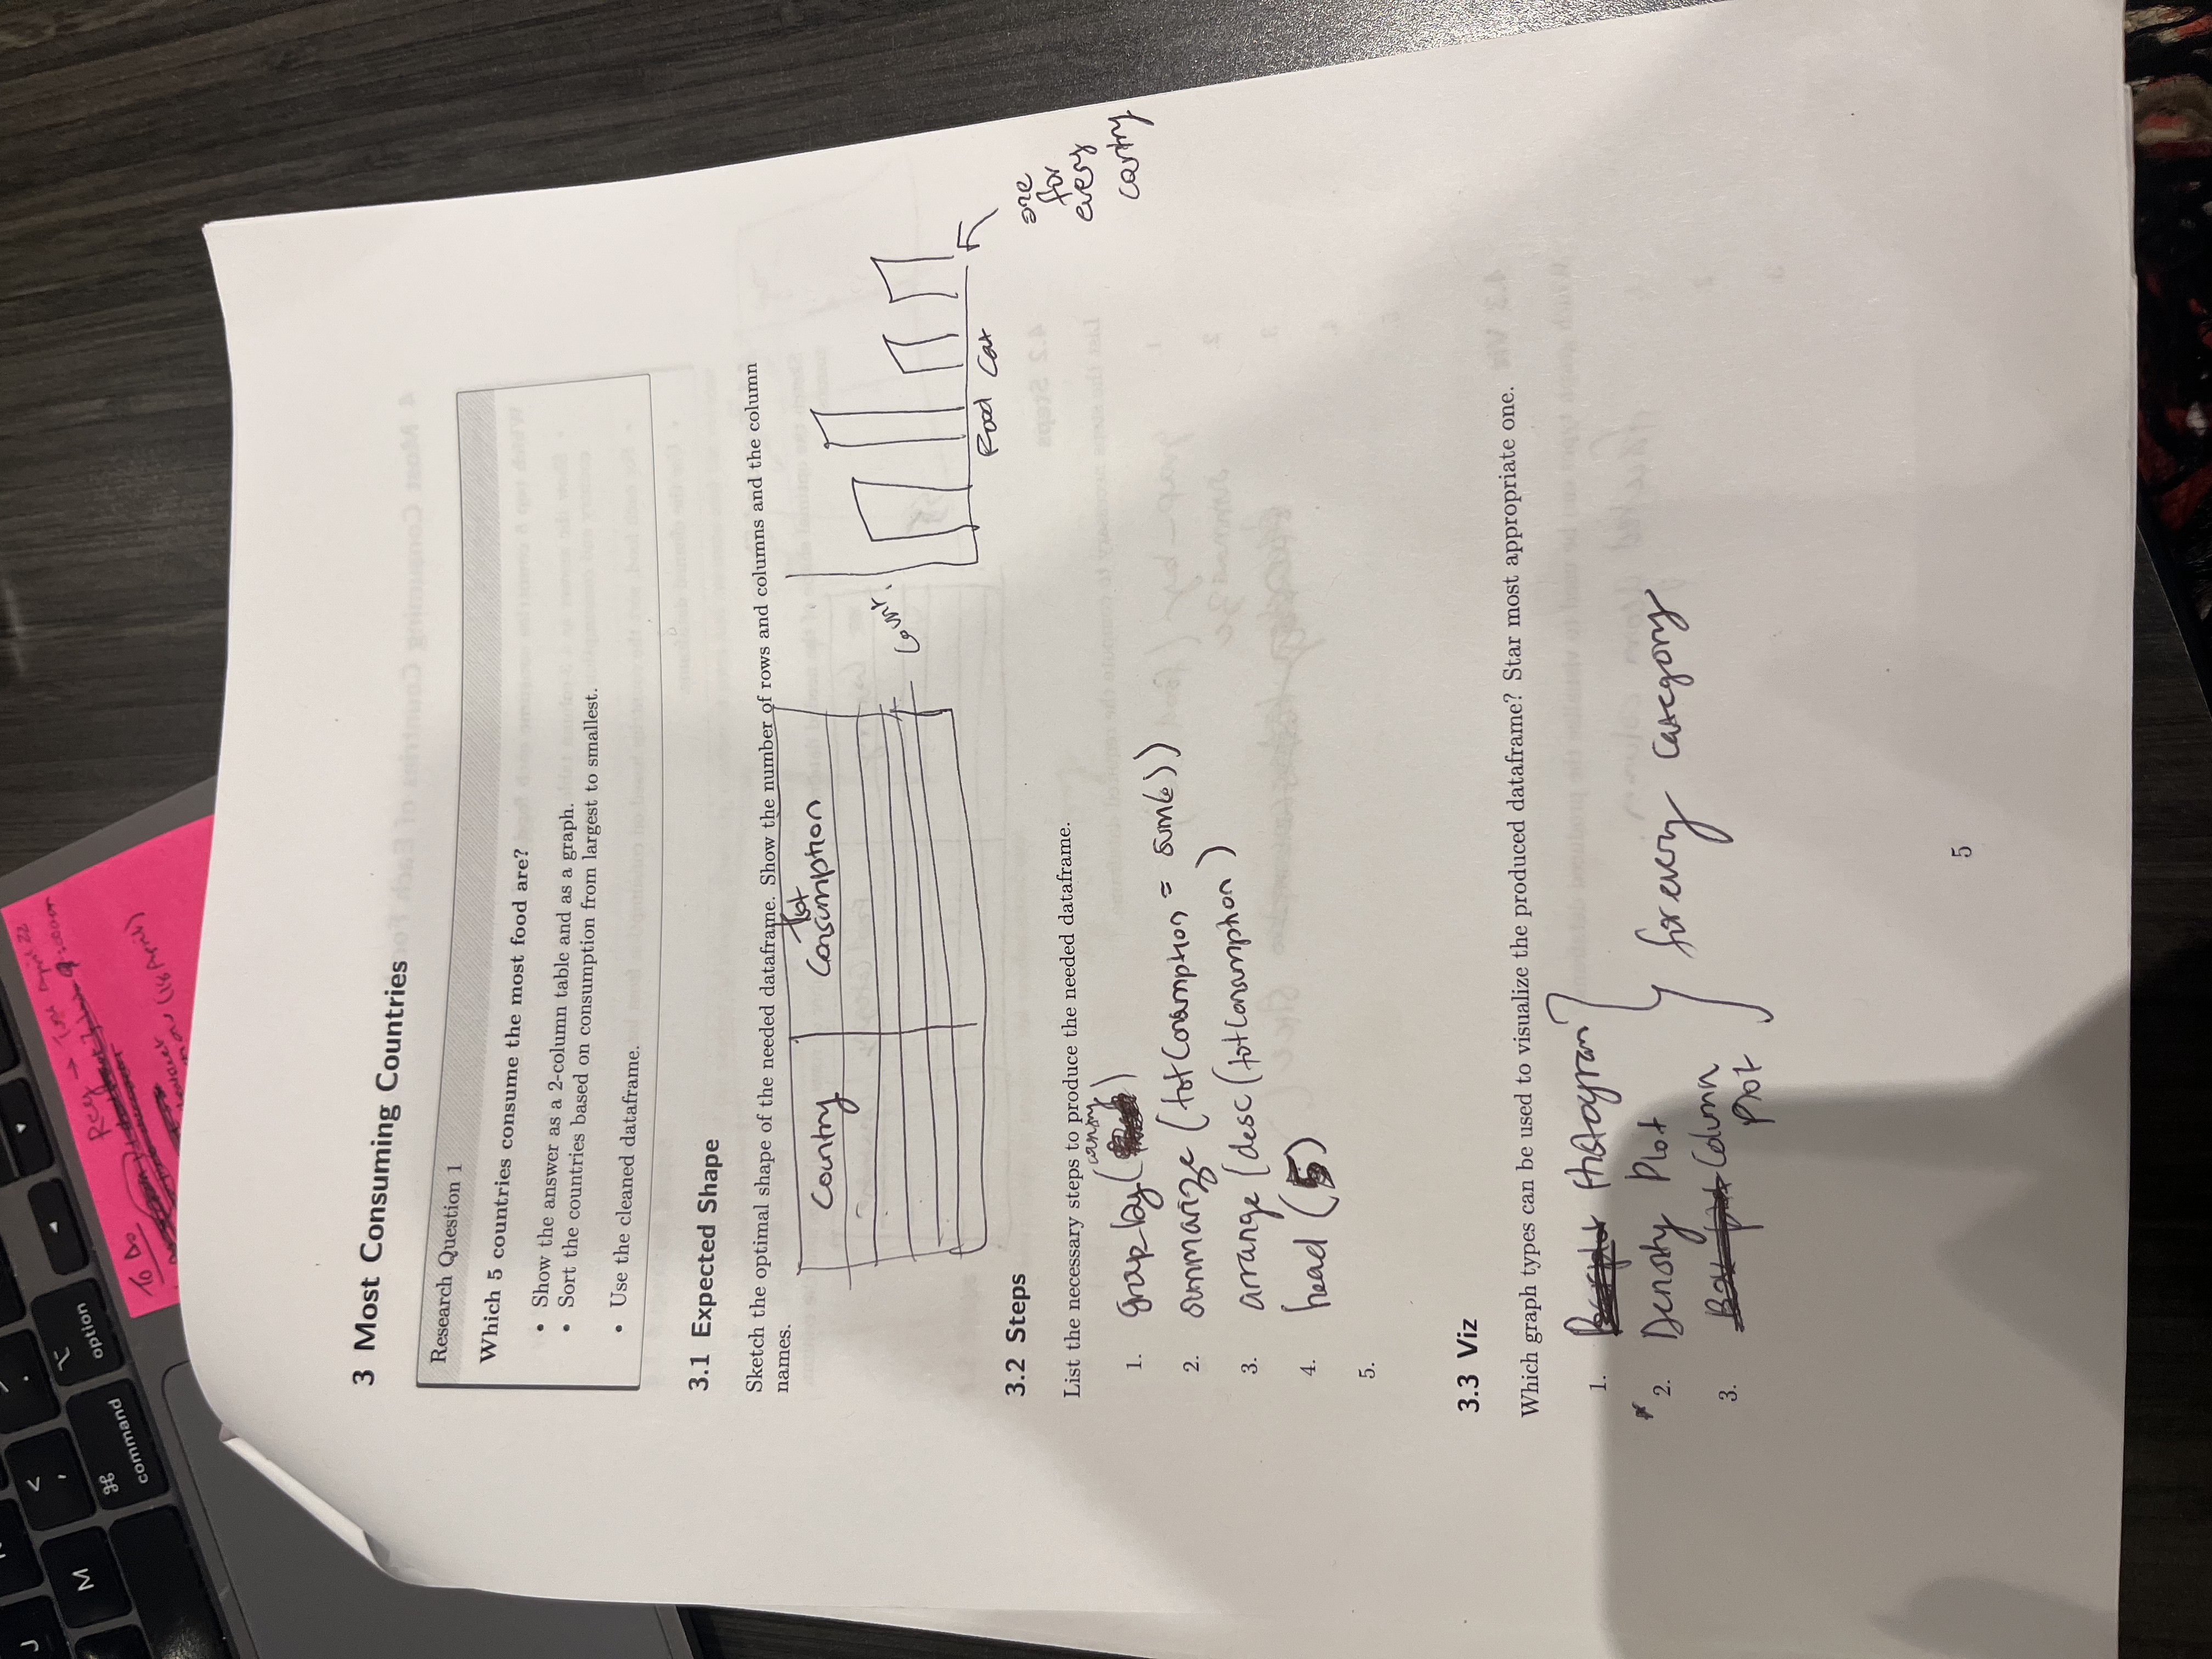 J
M
<
,
.
⌘
command
⌥
option
◄
▼
To Do
Reg → Tues April 22
9:00am
(18 April)
3 Most Consuming Countries
Research Question 1
Which 5 countries consume the most food are?
• Show the answer as a 2-column table and as a graph.
• Sort the countries based on consumption from largest to smallest.
• Use the cleaned dataframe.
3.1 Expected Shape
Sketch the optimal shape of the needed dataframe. Show the number of rows and columns and the column
names.
Country
Tot
Consumption
Count
Food Cat
one
for
every
contry
3.2 Steps
List the necessary steps to produce the needed dataframe.
1. group_by(country)
2. summarize (totConsumption = sum())
3. arrange (desc (totConsumption )
4. head (5)
5.
3.3 Viz
Which graph types can be used to visualize the produced dataframe? Star most appropriate one.
1. Barplot Histogram
* 2. Density Plot
3. Box plot Column
Plot
for every category
5